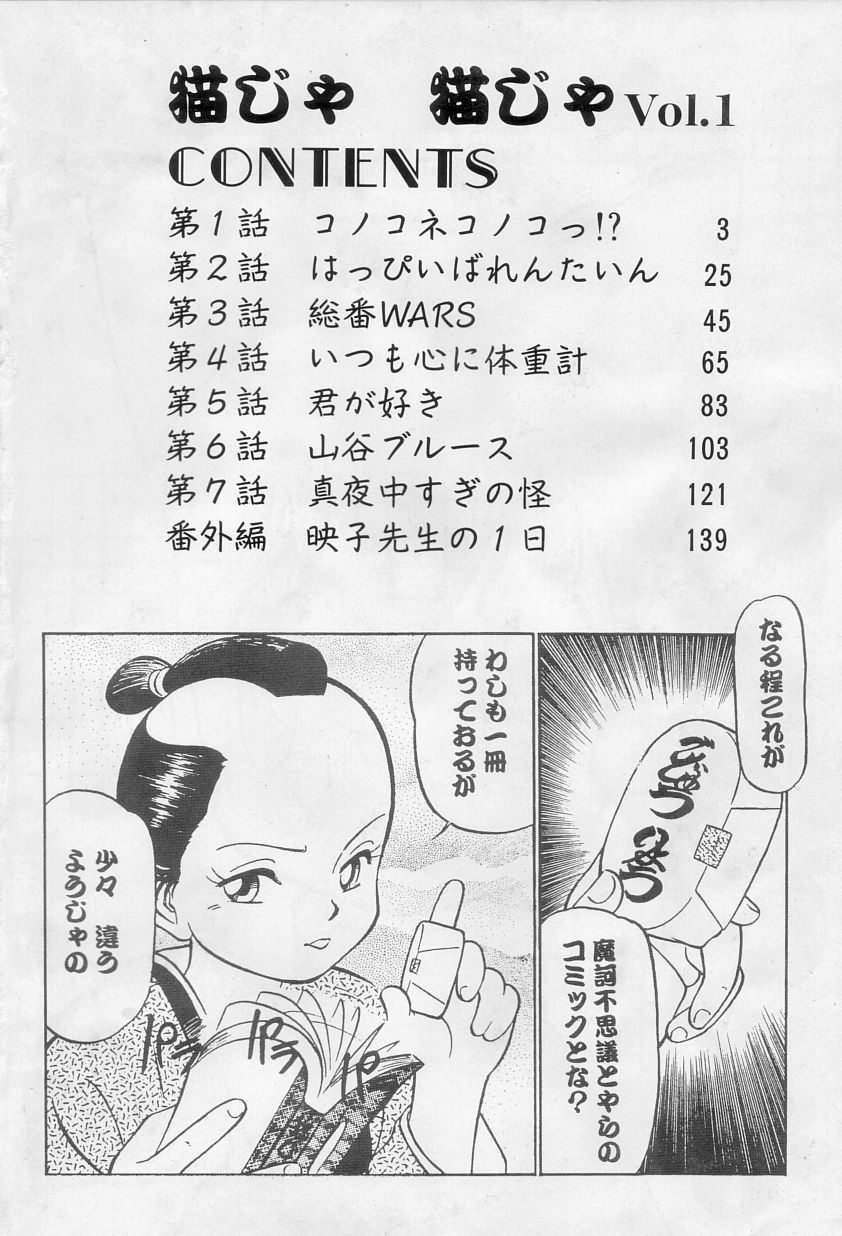 猫じゃ　猫じゃ Vol.1
CONTENTS
第1話　コノコネコノコっ!?　3
第2話　はっぴいばれんたいん　25
第3話　総番WARS　45
第4話　いつも心に体重計　65
第5話　君が好き　83
第6話　山谷ブルース　103
第7話　真夜中すぎの怪　121
番外編　映子先生の1日　139
なる程これが
魔訶不思議とやらの
コミックとな?
わしも一冊
持っておるが
少々　違う
ようじゃの
パラ
パラ
パ